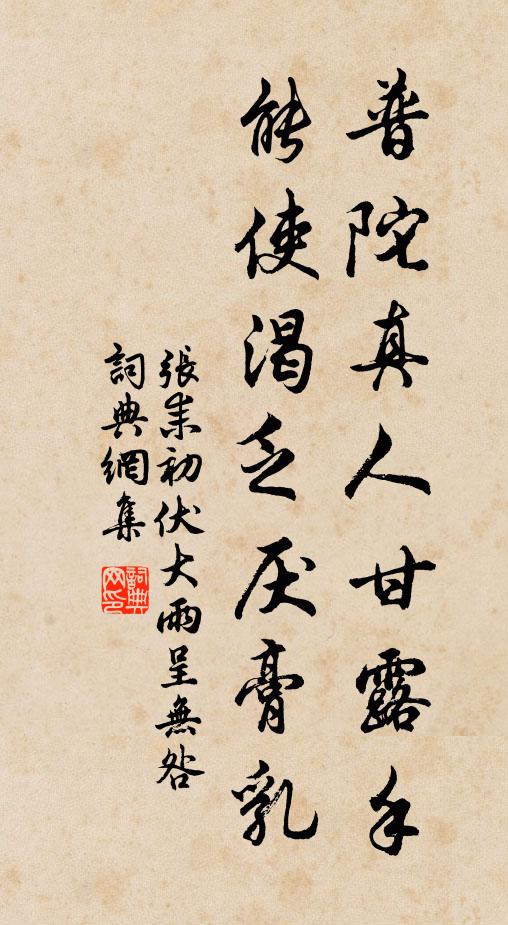 普陀真人甘露手
能使渴乏厌膏乳
張耒初伏大雨呈無咎
詞典網集
詞典
网印